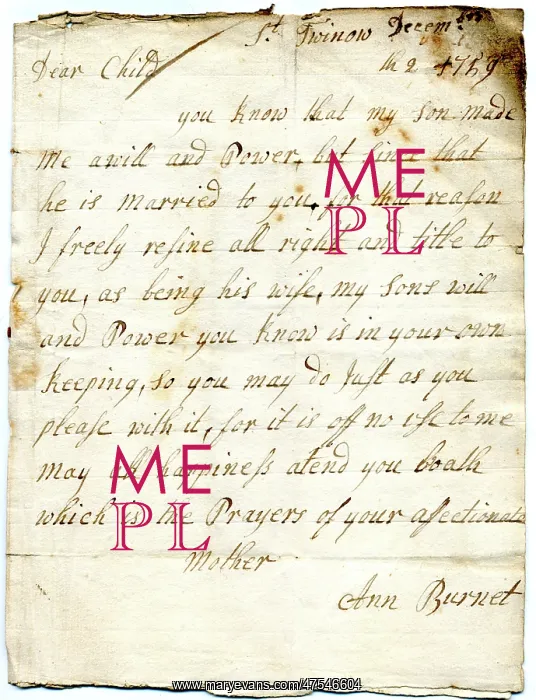 St. Twinow Decem.br
th 2 1759
Dear Child
you know that my son made
me a will and Power, but since that
he is married to you, for that reason
I freely resine all right and title to
you, as being his wife, my sons will
and Power you know is in your own
keeping, so you may do Just as you
please with it, for it is off no use to me
may all happiness atend you boath
which is the Prayers of your affectionate
Mother
Ann Burnet
ME
PL
ME
PL
www.maryevans.com/47546604